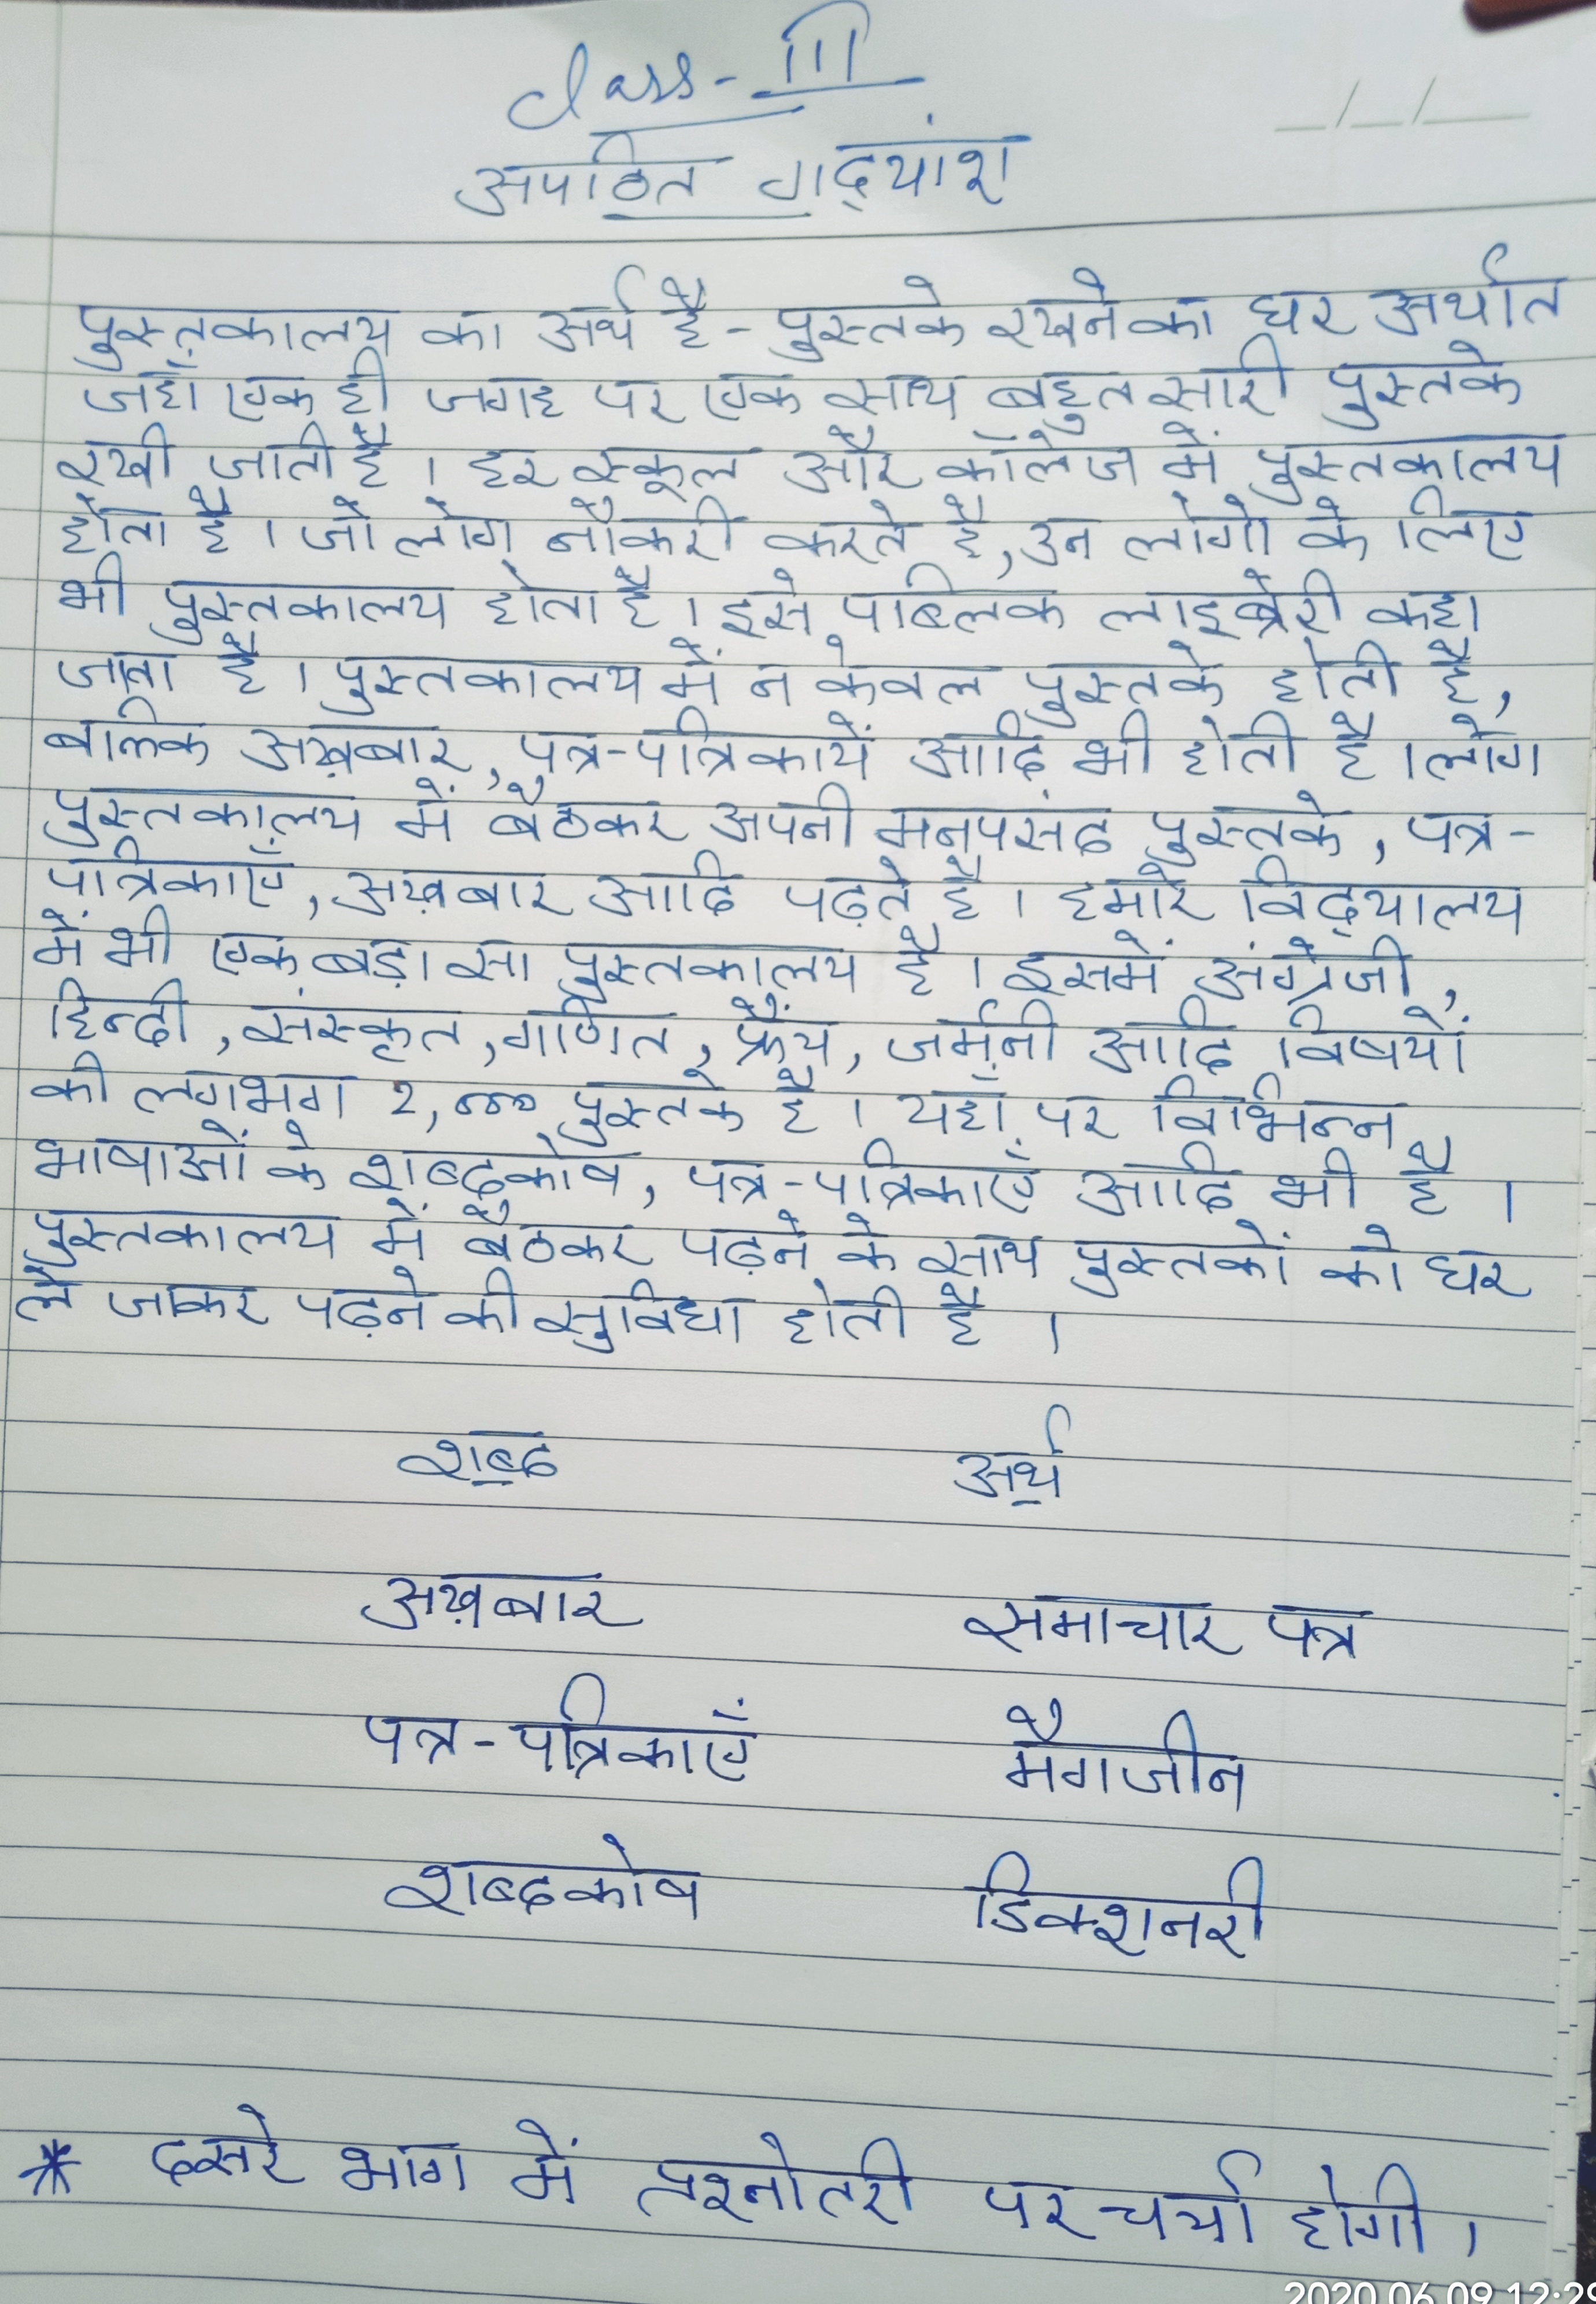 class - III
अपठित गद्यांश
पुस्तकालय का अर्थ है - पुस्तके रखने का घर अर्थात
जहाँ एक ही जगह पर एक साथ बहुत सारी पुस्तके
रखी जाती है । हर स्कूल और कॉलेज में पुस्तकालय
होता है । जो लोग नौकरी करते है, उन लोगो के लिए
भी पुस्तकालय होता है । इसे पब्लिक लाइब्रेरी कहा
जाता है । पुस्तकालय में न केवल पुस्तके होती है,
बल्कि अख़बार, पत्र-पत्रिकायें आदि भी होती है । लोग
पुस्तकालय में बैठकर अपनी मनपसंद पुस्तके, पत्र-
पत्रिकाएँ, अख़बार आदि पढ़ते है । हमारे विद्यालय
में भी एक बड़ा सा पुस्तकालय है । इसमें अंग्रेजी,
हिन्दी, संस्कृत, गणित, फ्रैंच, जर्मनी आदि विषयों
की लगभग 2,000 पुस्तके है । यहाँ पर विभिन्न
भाषाओं के शब्दकोष, पत्र-पत्रिकाएँ आदि भी है ।
पुस्तकालय में बैठकर पढ़ने के साथ पुस्तकों को घर
ले जाकर पढ़ने की सुविधा होती है ।
शब्द अर्थ
अख़बार समाचार पत्र
पत्र-पत्रिकाएँ मैगजीन
शब्दकोष डिक्शनरी
* दसरे भाग में प्रश्नोतरी पर चर्चा होगी ।
2020.06.09 12:29